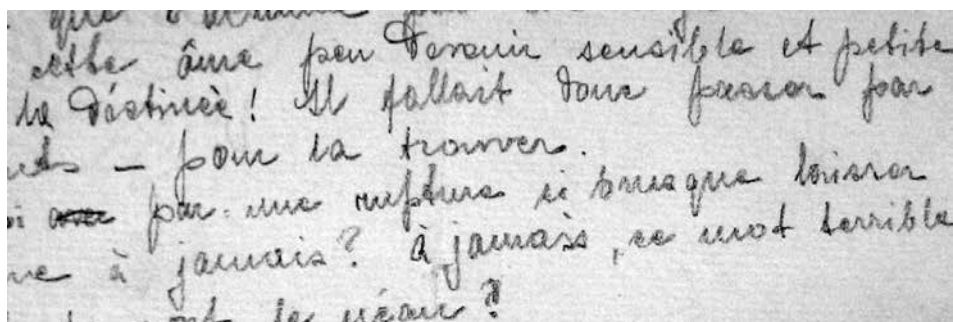 que
cette âme peu devenir sensible et petite
la déstinée! Il fallait donc passer par
– pour la trouver.
par une rupture si brusque laisser
à jamais? à jamais, ce mot terrible
le néan?